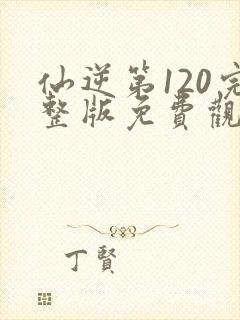 仙逆第120完
整版免費觀
丁賢